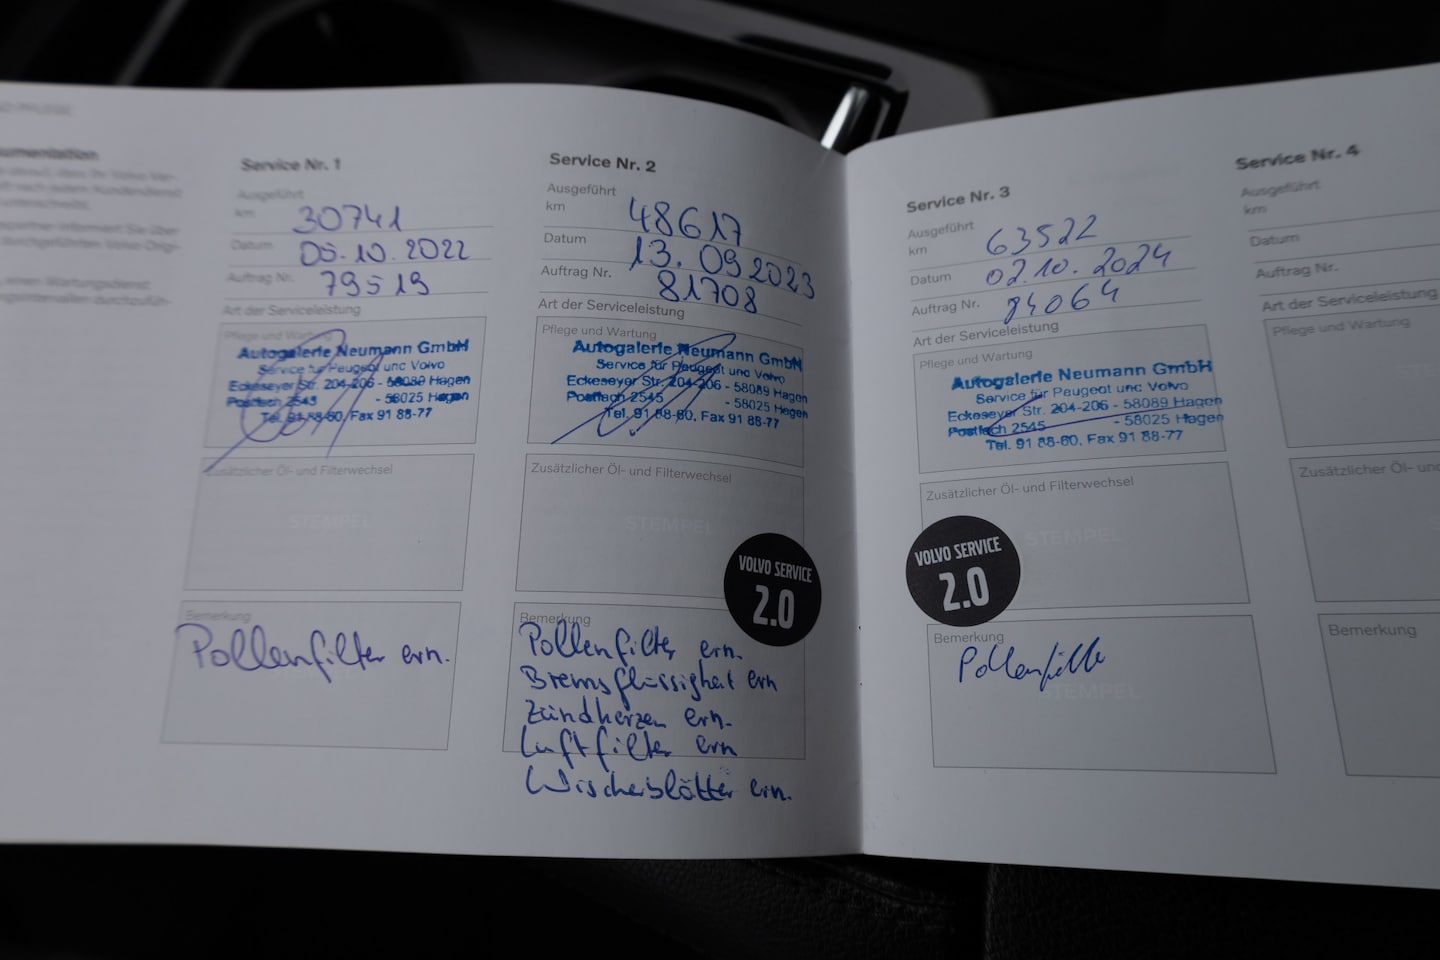 Service Nr. 1
Ausgeführt
km 30741
Datum 05.10.2022
Auftrag Nr. 79519
Art der Serviceleistung
Pflege und Wartung
Autogalerie Neumann GmbH
Service für Peugeot und Volvo
Eckeseyer Str. 204-206 - 58089 Hagen
Postfach 2545 - 58025 Hagen
Tel. 91 88-60, Fax 91 88-77
Zusätzlicher Öl- und Filterwechsel
STEMPEL
Bemerkung
Pollenfilter ern.
Service Nr. 2
Ausgeführt
km 48617
Datum 13.09.2023
Auftrag Nr. 81708
Art der Serviceleistung
Pflege und Wartung
Autogalerie Neumann GmbH
Service für Peugeot und Volvo
Eckeseyer Str. 204-206 - 58089 Hagen
Postfach 2545 - 58025 Hagen
Tel. 91 88-60, Fax 91 88-77
Zusätzlicher Öl- und Filterwechsel
STEMPEL
VOLVO SERVICE
2.0
Bemerkung
Pollenfilter ern.
Bremsflüssigkeit ern
Zündkerzen ern.
Luftfilter ern
Wischerblätter ern.
Service Nr. 3
Ausgeführt
km 63522
Datum 02.10.2024
Auftrag Nr. 84064
Art der Serviceleistung
Pflege und Wartung
Autogalerie Neumann GmbH
Service für Peugeot und Volvo
Eckeseyer Str. 204-206 - 58089 Hagen
Postfach 2545 - 58025 Hagen
Tel. 91 88-60, Fax 91 88-77
Zusätzlicher Öl- und Filterwechsel
STEMPEL
VOLVO SERVICE
2.0
Bemerkung
Pollenfilter
STEMPEL
Service Nr. 4
Ausgeführt
km
Datum
Auftrag Nr.
Art der Serviceleistung
Pflege und Wartung
Zusätzlicher Öl- und
Bemerkung